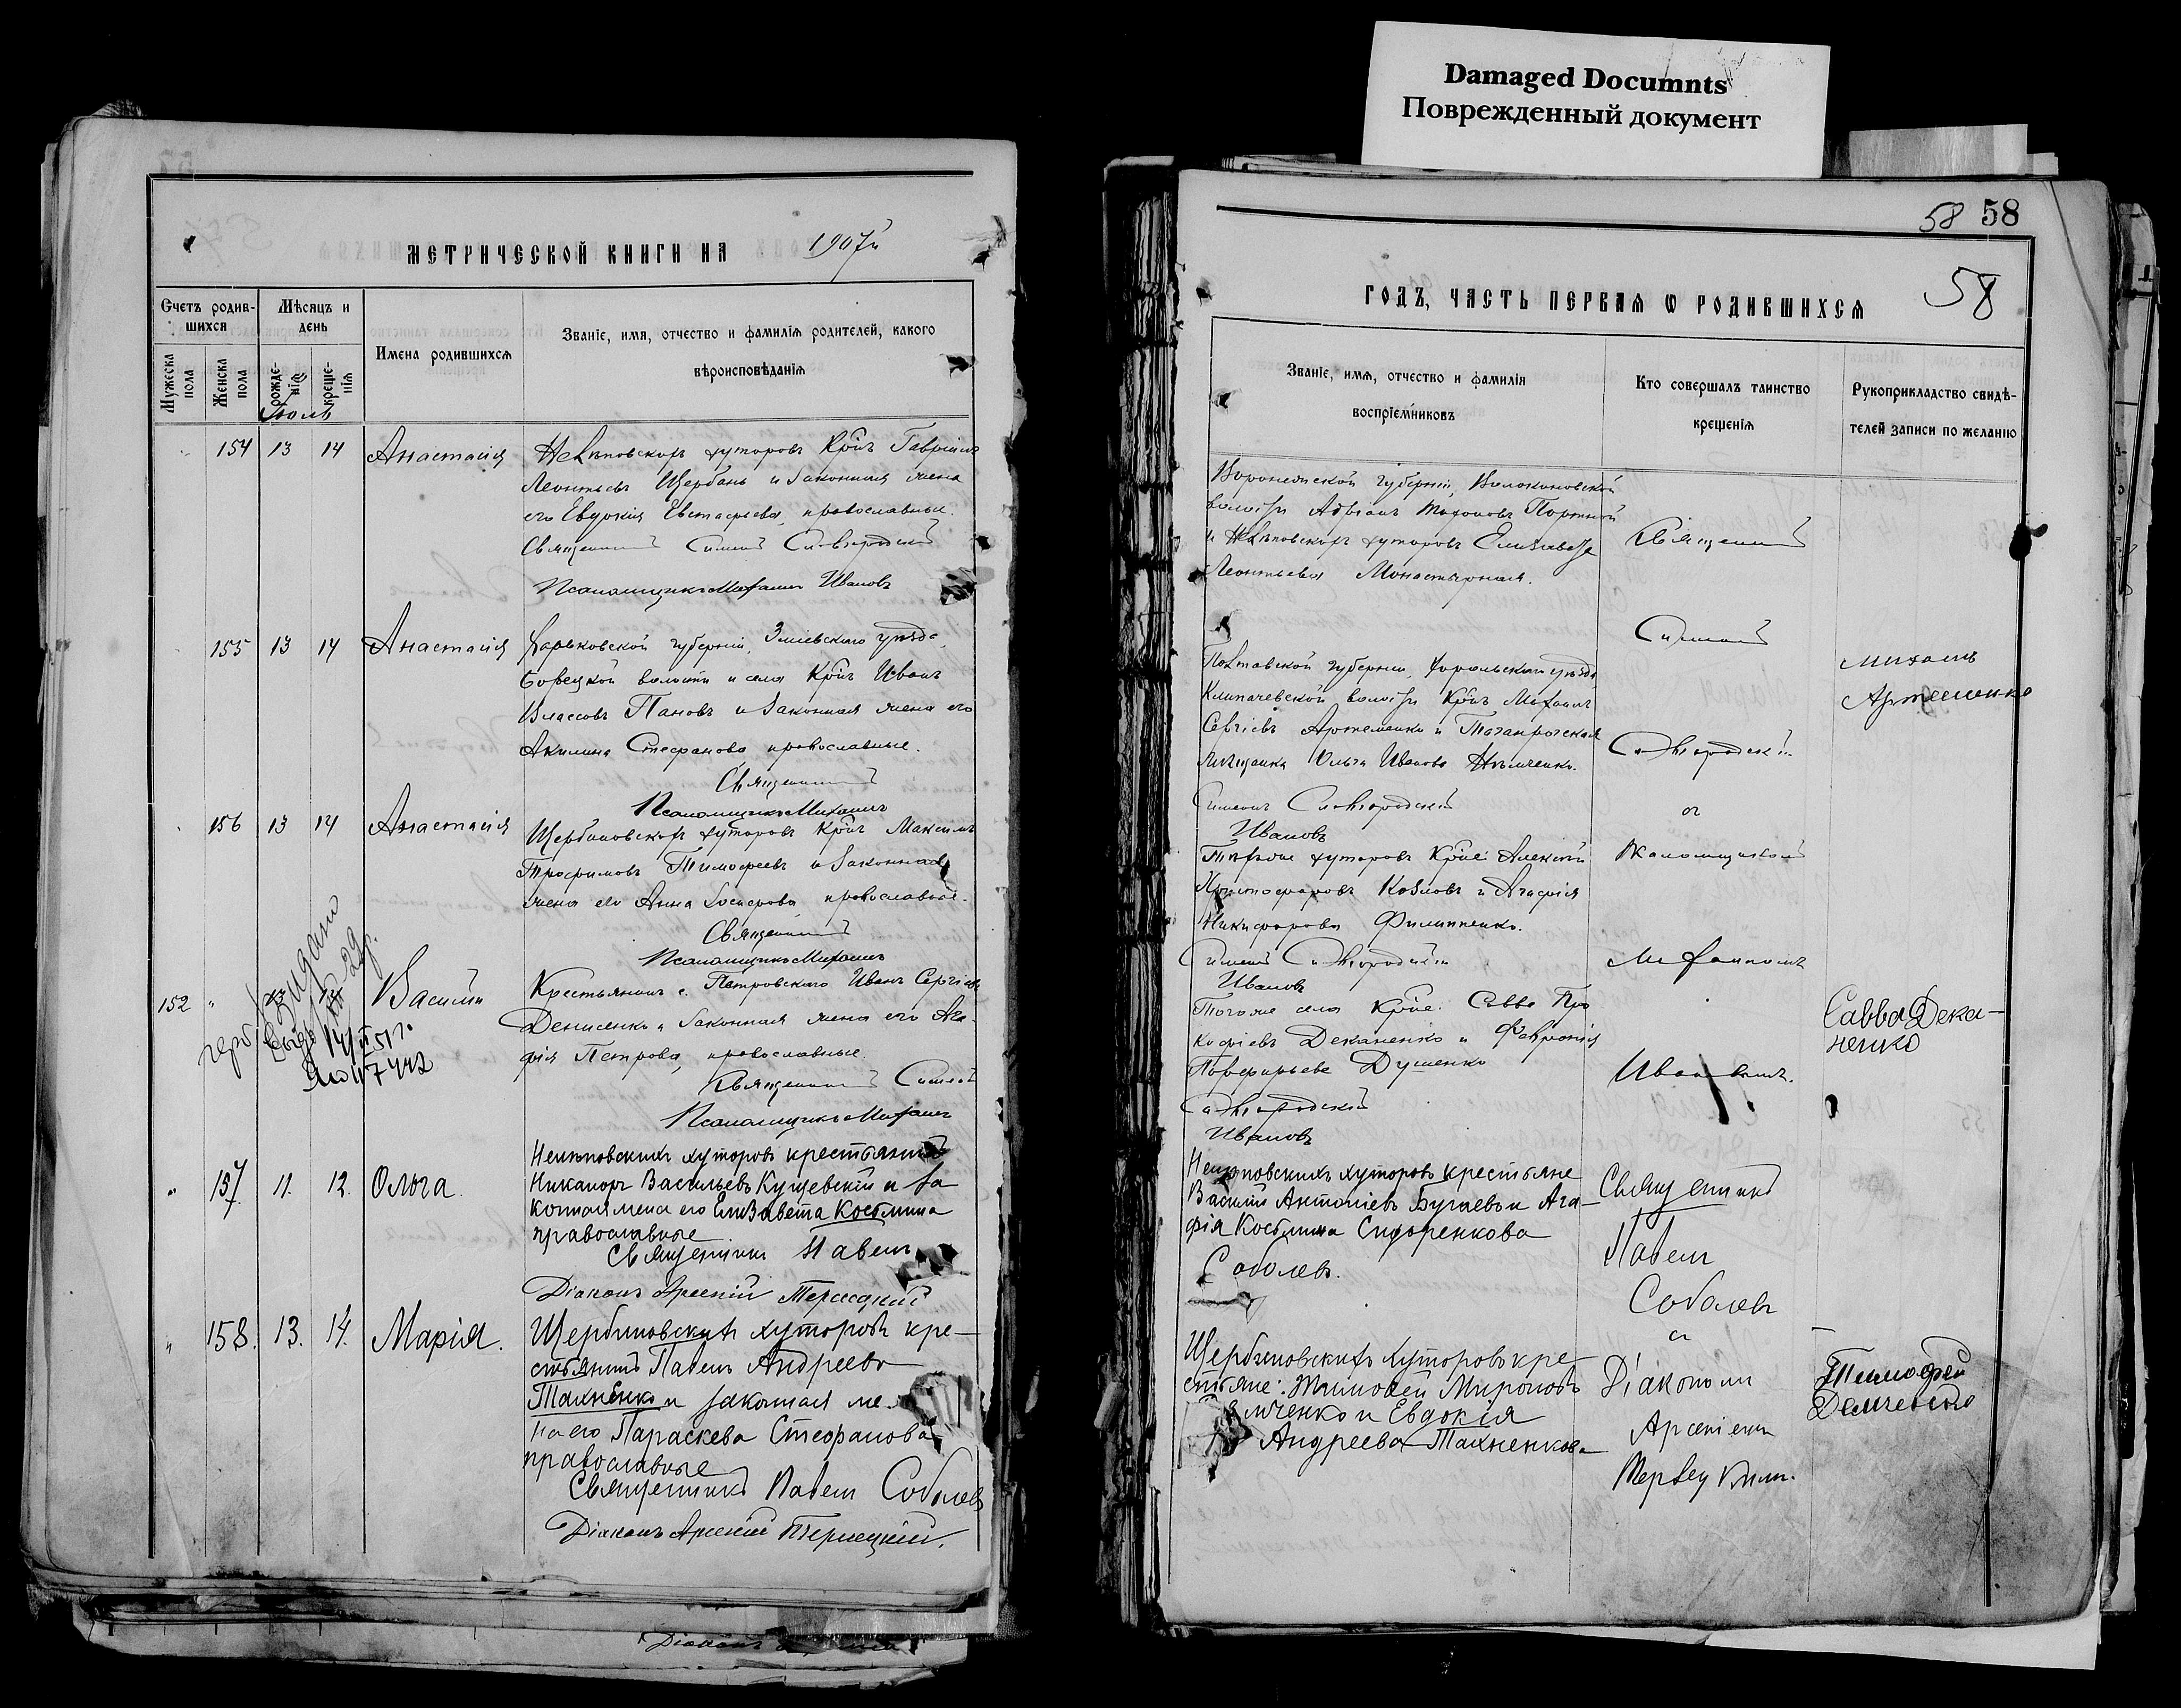 Damaged Documnts
Поврежденный документ
МЕТРИЧЕСКОЙ КНИГИ НА 1907й
Счетъ родив-
шихся
Мѣсяцъ и
день
Имена родившихся
Званіе, имя, отчество и фамилія родителей, какого
вѣроисповѣданія
Мужеска
пола
Женска
пола
рожде-
нія
креще-
нія
Іюль
154 13 14 Анастасія
хуторовъ Кр̃нъ Гавріилъ
Леонтьевъ Щербань и законная жена
его Евдокія Евстафьева, православные.
Священникъ Симеонъ
Псаломщикъ Михаилъ Ивановъ
155 13 14 Анастасія
Харьковской губерніи, Зміевскаго уѣзда,
волости и села Кр̃нъ Иванъ
Власовъ Пановъ и законная жена его
Акилина Стефанова, православные.
Священникъ
Псаломщикъ Михаилъ
156 13 14 Анастасія
Щербиновскихъ хуторовъ Кр̃нъ Максимъ
Трофимовъ Тимофеевъ и законная
жена его Анна православные.
Священникъ
Псаломщикъ Михаилъ
152 " 13 14 Василій
Крестьянинъ с. Петровскаго Иванъ Сергіевъ
Денисенко и законная жена его Ага-
фія Петрова, православные.
Священникъ Симеонъ
Псаломщикъ Михаилъ
" 157 11. 12. Ольга.
Нелѣповскихъ хуторовъ крестьянинъ
Никаноръ Васильевъ Кущевскій и за
конная жена его Елизавета Косьмина
православные
Священникъ Павелъ
Діаконъ Арсеній Терлецкій
" 158. 13. 14. Марія.
Щербиновскихъ хуторовъ кре-
стьянинъ Павелъ Андреевъ
Тахненко и законная же-
на его Параскева Стефанова
православные
Священникъ Павелъ Соболевъ
Діаконъ Арсеній Терлецкій.
58 58
ГОДЪ, ЧАСТЬ ПЕРВАЯ Ѡ РОДИВШИХСЯ 58
Званіе, имя, отчество и фамилія
воспріемниковъ
Кто совершалъ таинство
крещенія
Рукоприкладство свидѣ-
телей записи по желанію
Воронежской губерніи, Волоконовской
волости Адріанъ
и хуторовъ Елизавета
Леонтьева Монастырная.
Священникъ
Симеонъ
Полтавской губерніи, Хорольскаго уѣзда
волости Кр̃нъ Михаилъ
Сергіевъ Артеменко и Таганрогская
мѣщанка Ольга Иванова Нѣмченко.
Михаилъ
Артеменко
Симеонъ
Ивановъ
съ
хуторовъ Кр̃не Алексій
Христофоровъ Козловъ и Агафія
Никифорова Филипенко.
Псаломщикомъ
Симеонъ
Ивановъ
Михаиломъ
Того же села Кр̃не: Савва Про
кофіевъ Деканенко и Февронія
Порфирьева Душенко
Савва Дека-
ненко
Ивановымъ.
Ивановъ
Нелѣповскихъ хуторовъ крестьяне
Василій Антоніевъ Бугаевъ и Ага-
фія Косьмина Сидоренкова
Соболевъ.
Священникъ
Павелъ
Соболевъ
съ
Щербиновскихъ хуторовъ кре-
стьяне: Тимофей Мироновъ
Демченко и Евдокія
Андреева Тахненкова
Діакономъ
Арсеніемъ
Терлецкимъ.
Тимофей
Демченко